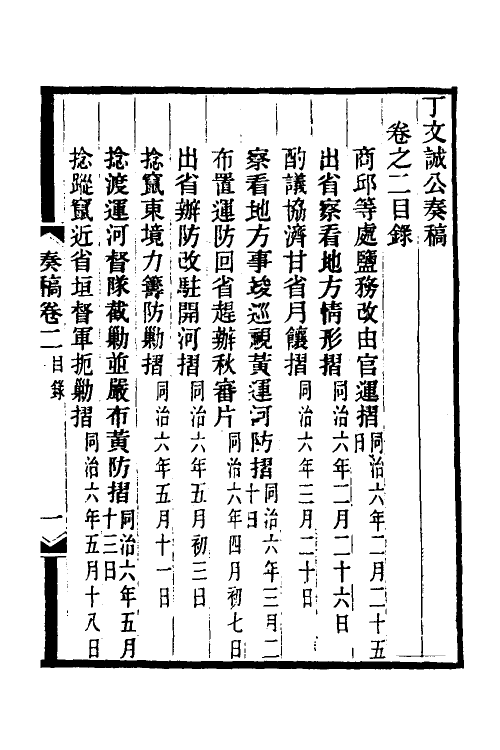 丁文誠公奏稿
卷之二目錄
商邱等處鹽務改由官運摺同治六年二月二十五日
出省察看地方情形摺同治六年二月二十六日
酌議協濟甘省月饟摺同治六年三月二十日
察看地方事竣巡視黃運河防摺同治六年三月二十日
布置運防回省趕辦秋審片同治六年四月初七日
出省辦防改駐開河摺同治六年五月初三日
捻竄東境力籌防勦摺同治六年五月十一日
捻渡運河督隊截勦並嚴布黃防摺同治六年五月十三日
捻蹤竄近省垣督軍扼勦摺同治六年五月十八日
奏稿卷二 目錄 一